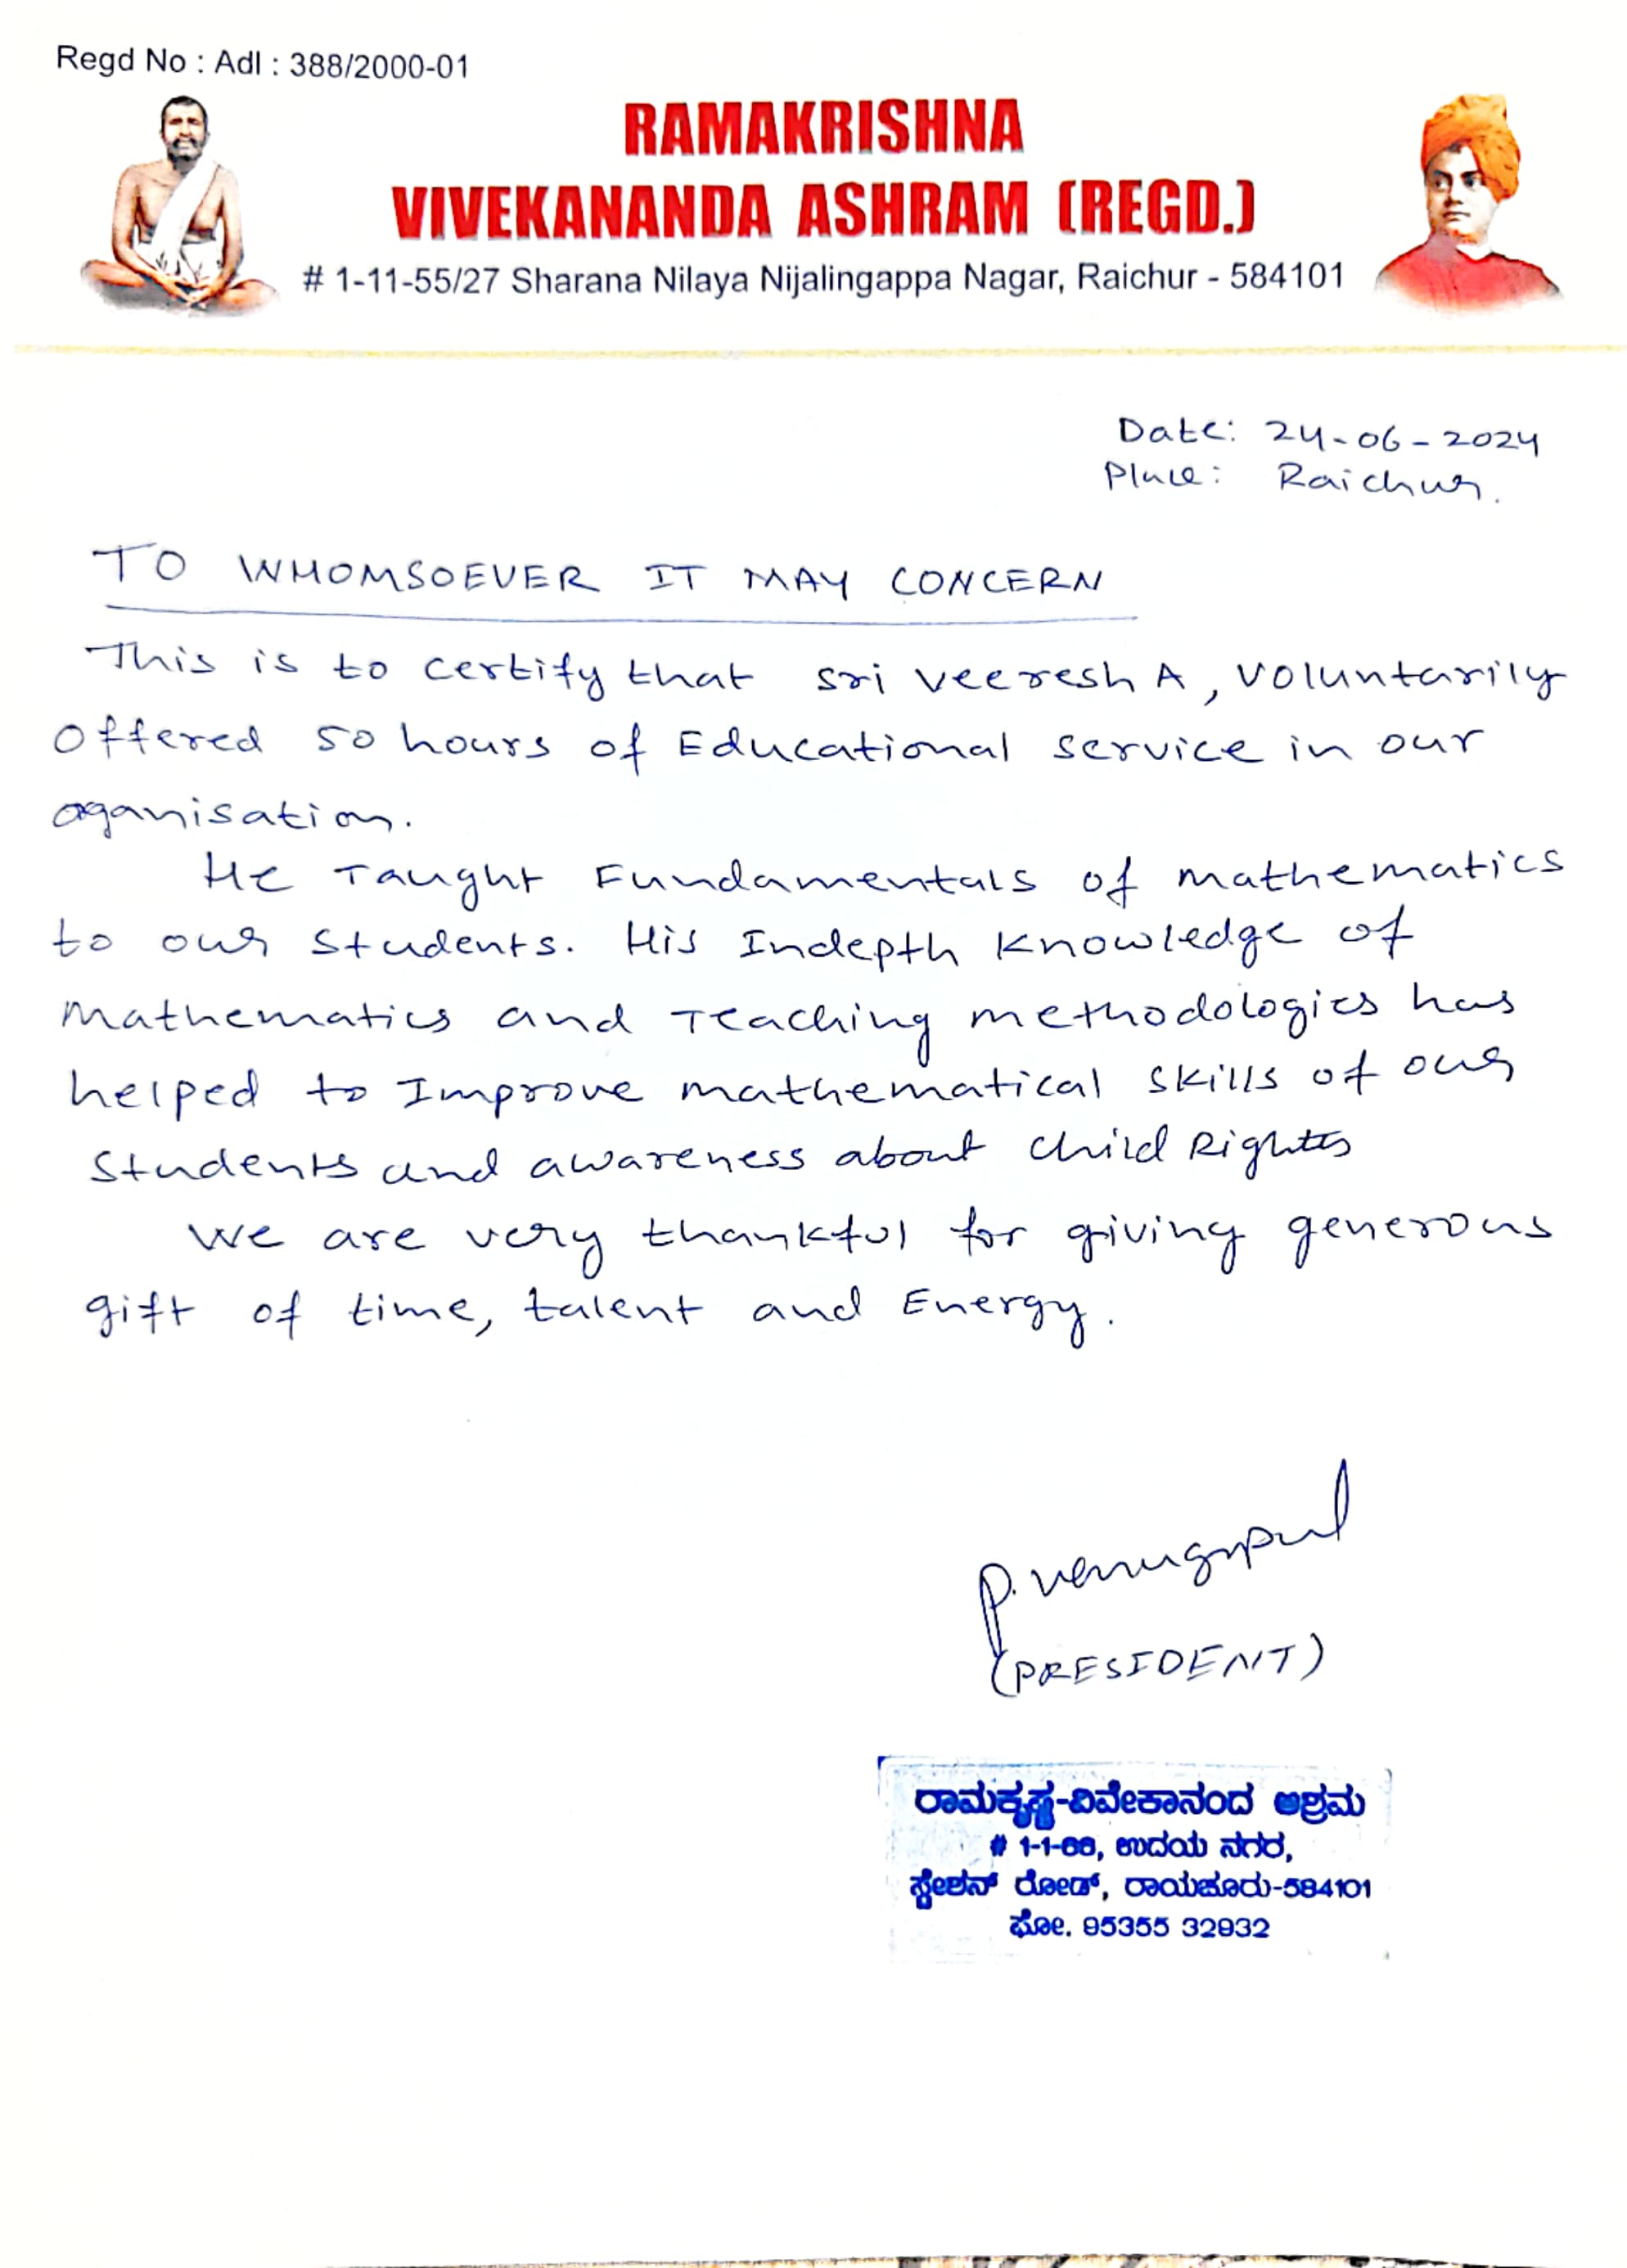 Regd No : Adl : 388/2000-01
RAMAKRISHNA
VIVEKANANDA ASHRAM (REGD.)
# 1-11-55/27 Sharana Nilaya Nijalingappa Nagar, Raichur - 584101
Date: 24-06-2024
Place: Raichur.
TO WHOMSOEVER IT MAY CONCERN
This is to certify that sri veeresh A, voluntarily
offered 50 hours of Educational service in our
oganisation.
He Taught Fundamentals of mathematics
to our students. His Indepth knowledge of
mathematics and Teaching methodologies has
helped to Improve mathematical skills of our
students and awareness about child Rights
We are very thankful for giving generous
gift of time, talent and Energy.
P. Venugopal
(PRESIDENT)
ರಾಮಕೃಷ್ಣ-ವಿವೇಕಾನಂದ ಆಶ್ರಮ
# ಉದಯ ನಗರ,
ಸ್ಟೇಶನ್ ರೋಡ್, ರಾಯಚೂರು-584101
ಫೋ. 95355 32932